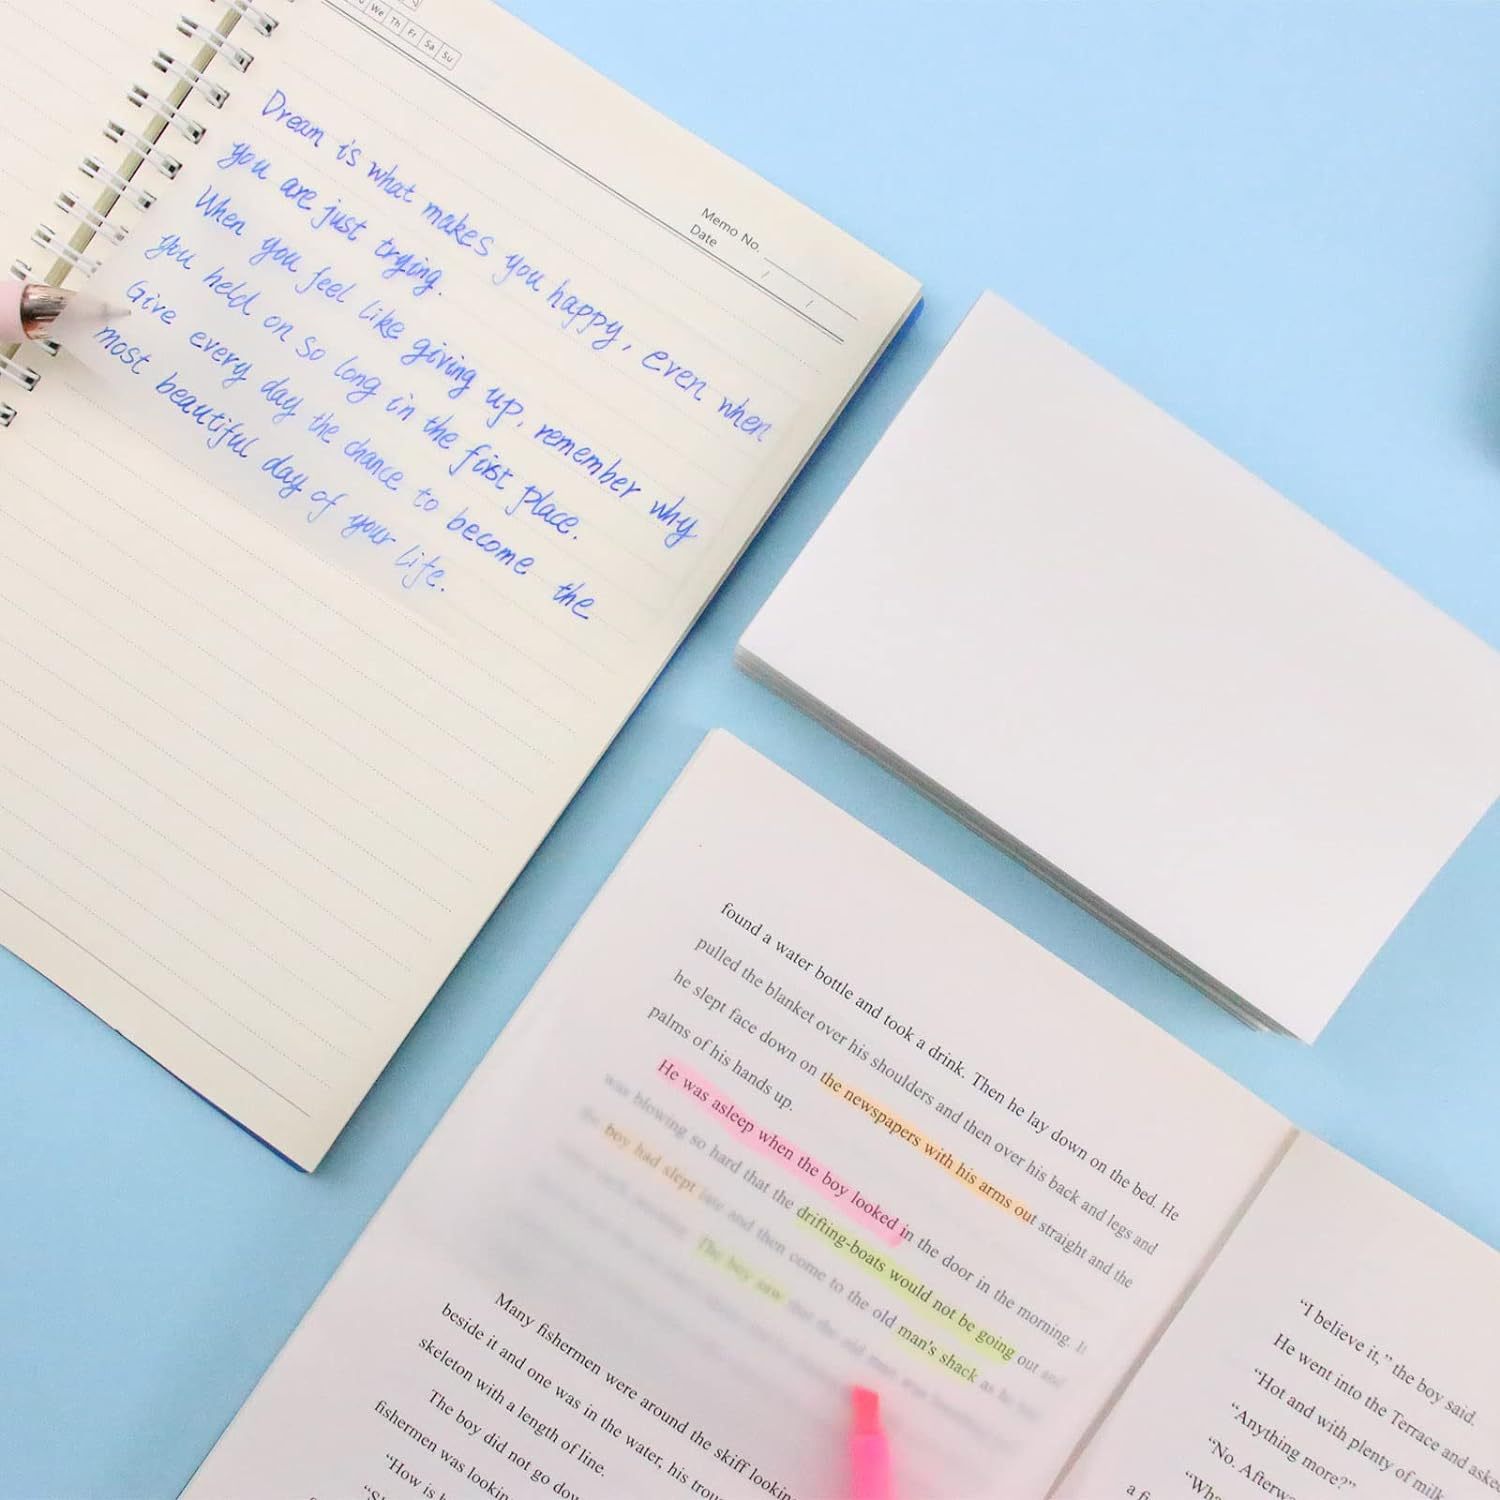 We Th Fr Sa Su
Memo No.
Date / /
Dream is what makes you happy, even when
you are just trying.
When you feel like giving up, remember why
you held on so long in the first place.
Give every day the chance to become the
most beautiful day of your life.
found a water bottle and took a drink. Then he lay down on the bed. He
pulled the blanket over his shoulders and then over his back and legs and
he slept face down on the newspapers with his arms out straight and the
palms of his hands up.
He was asleep when the boy looked in the door in the morning. It
was blowing so hard that the drifting-boats would not be going out and
the boy had slept late and then come to the old man's shack as he
The boy saw that the old man was
Many fishermen were around the skiff looking
beside it and one was in the water, his
skeleton with a length of line.
The boy did not go
fishermen was
“How is
“I believe it,” the boy said.
He went into the Terrace and asked
“Hot and with plenty of milk
“Anything more?”
“No.
a